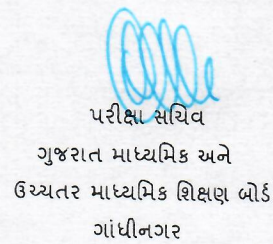 પરીક્ષા સચિવ
ગુજરાત માધ્યમિક અને
ઉચ્ચતર માધ્યમિક શિક્ષણ બોર્ડ
ગાંધીનગર